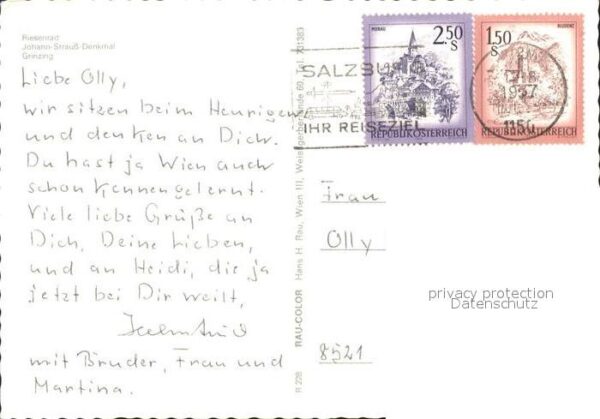 Riesenrad
Johann-Strauß-Denkmal
Grinzing
Liebe Olly,
wir sitzen beim Heurigen
und denken an Dich.
Du hast ja Wien auch
schon kennengelernt.
Viele liebe Grüße an
Dich, Deine Lieben,
und an Heidi, die ja
jetzt bei Dir weilt,
mit Bruder, Frau und
Martina.
R 228 RAU-COLOR Hans H. Rau, Wien III,
2.50 S
REPUBLIK ÖSTERREICH
1.50 S
BLUDENZ
REPUBLIK ÖSTERREICH
SALZBURG
IHR REISEZIEL
1150
Frau
Olly
8521
privacy protection
Datenschutz